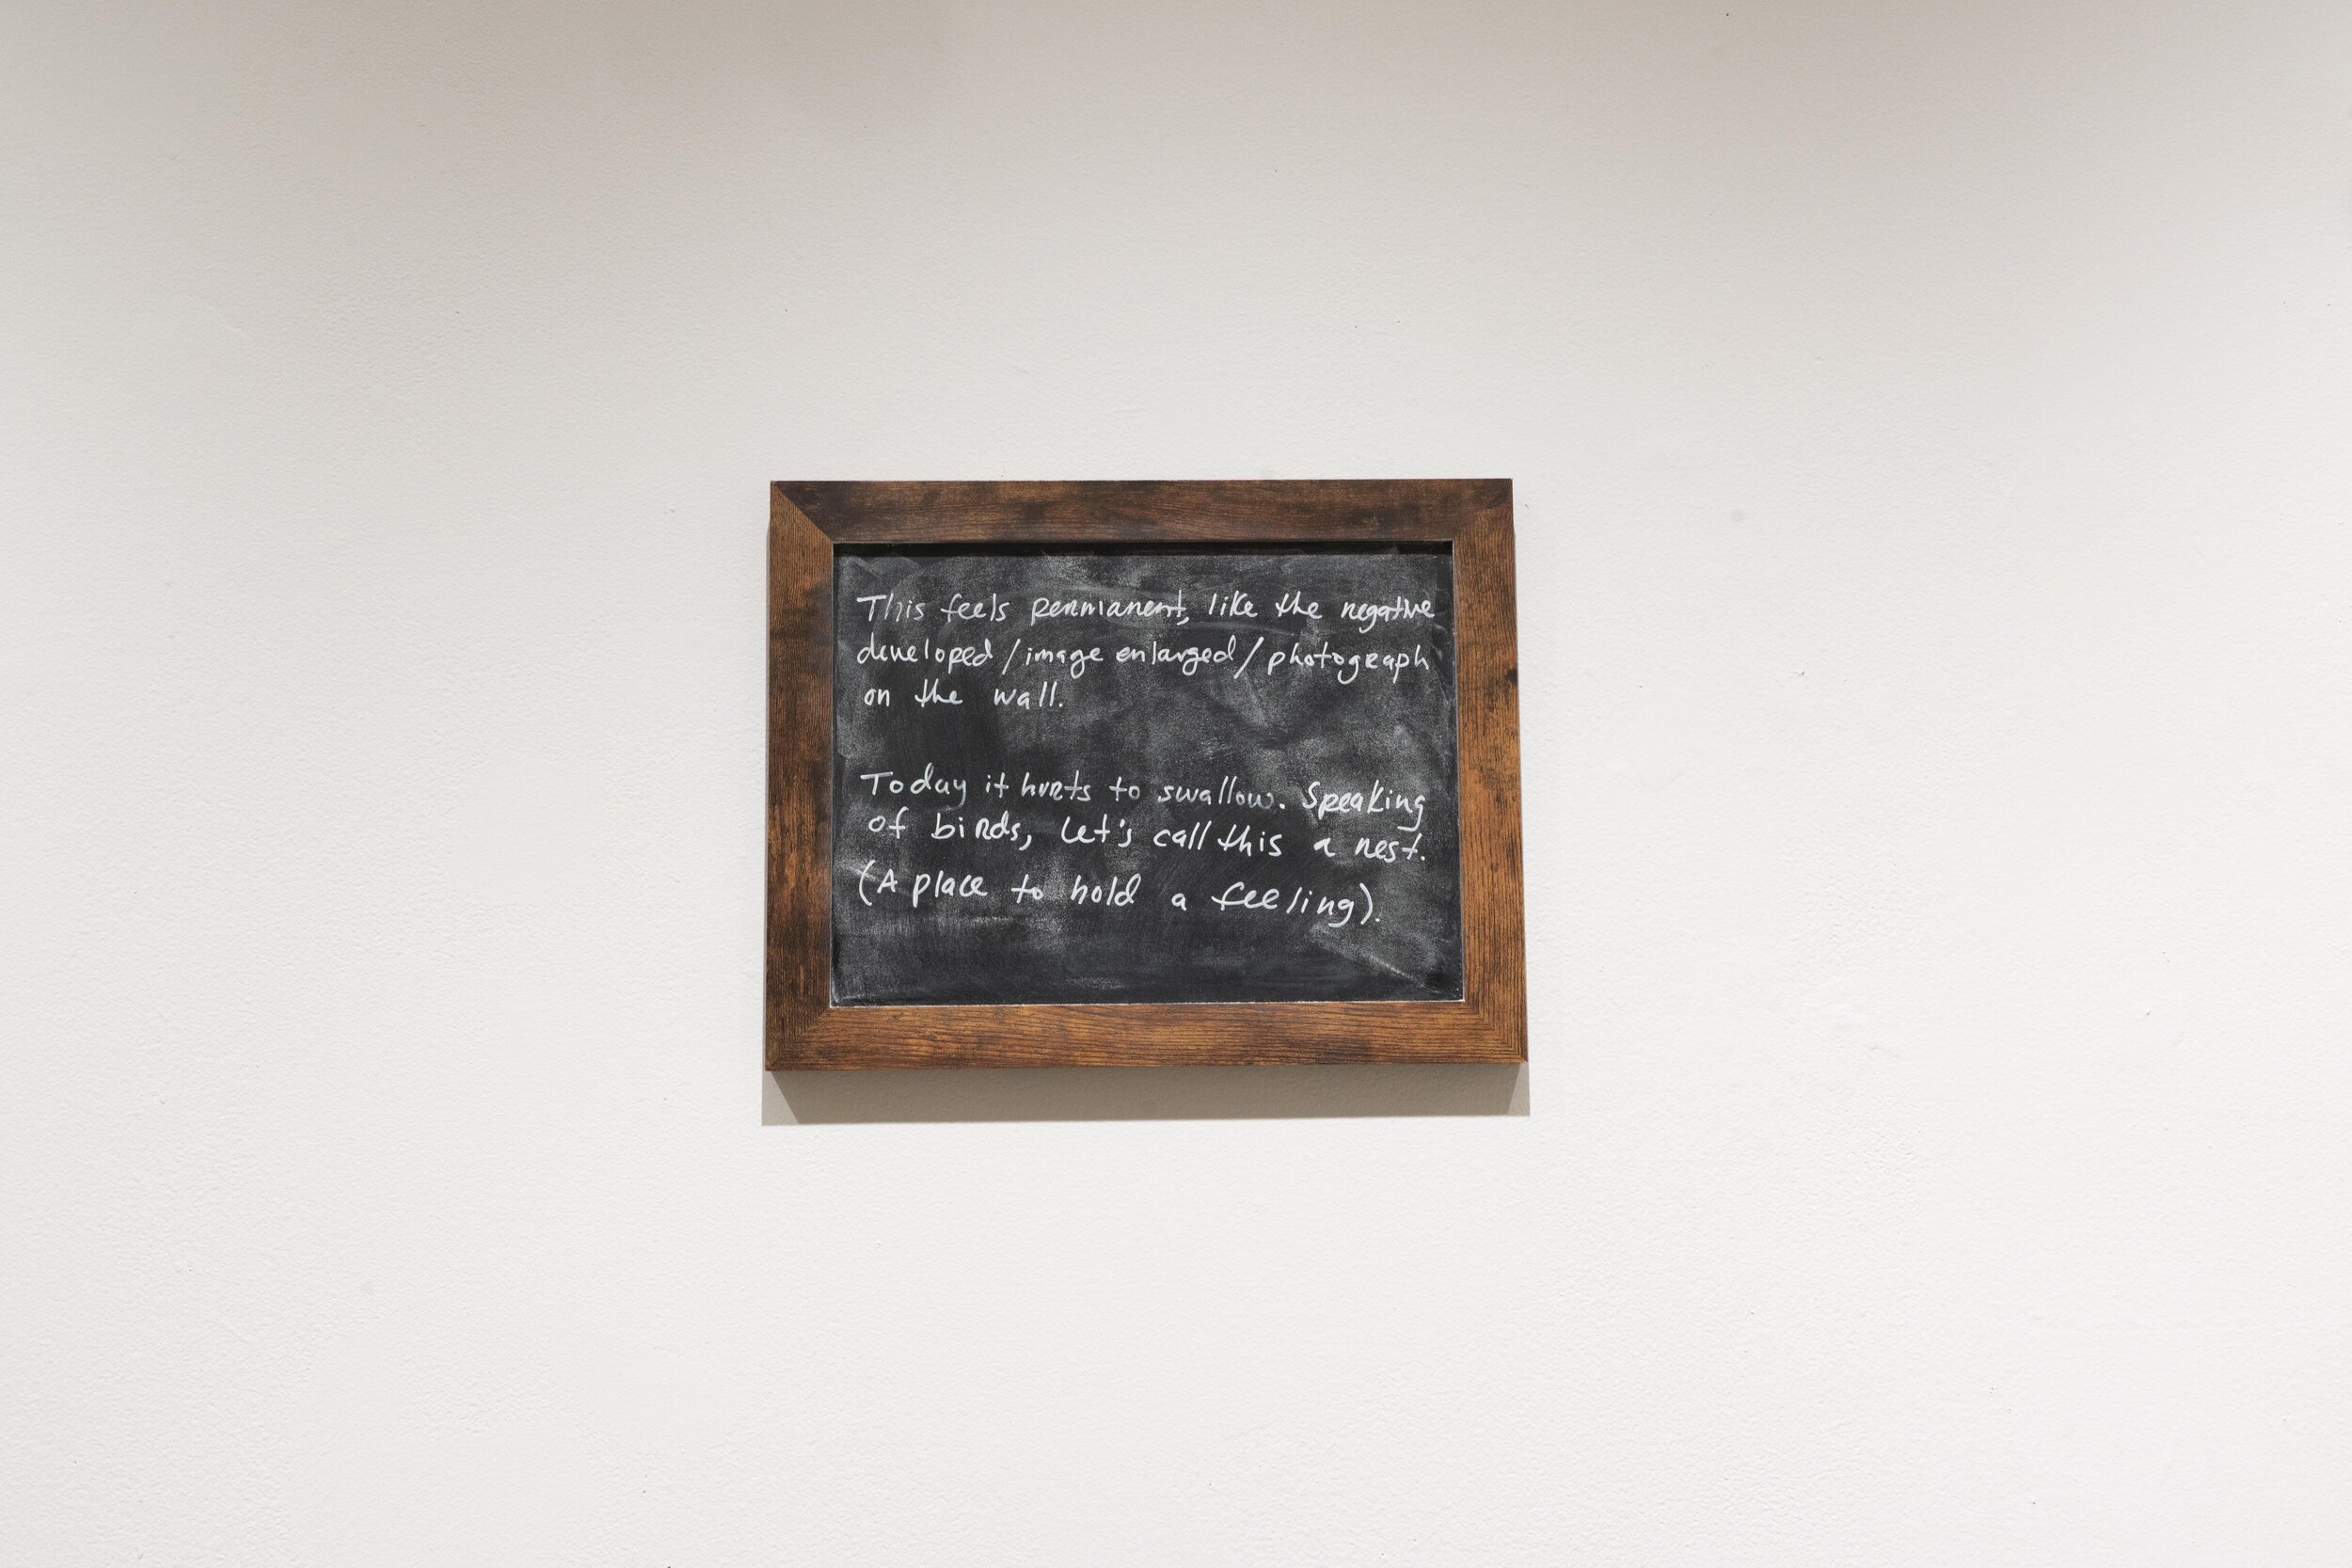 This feels permanent, like the negative
developed/image enlarged/photograph
on the wall.
Today it hurts to swallow. Speaking
of birds, let's call this a nest.
(A place to hold a feeling).